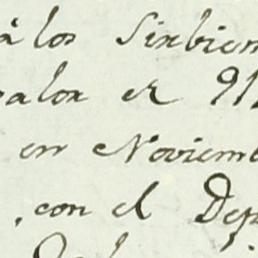 à los Sirbien
valor el M
en Noviem
, con el Dep